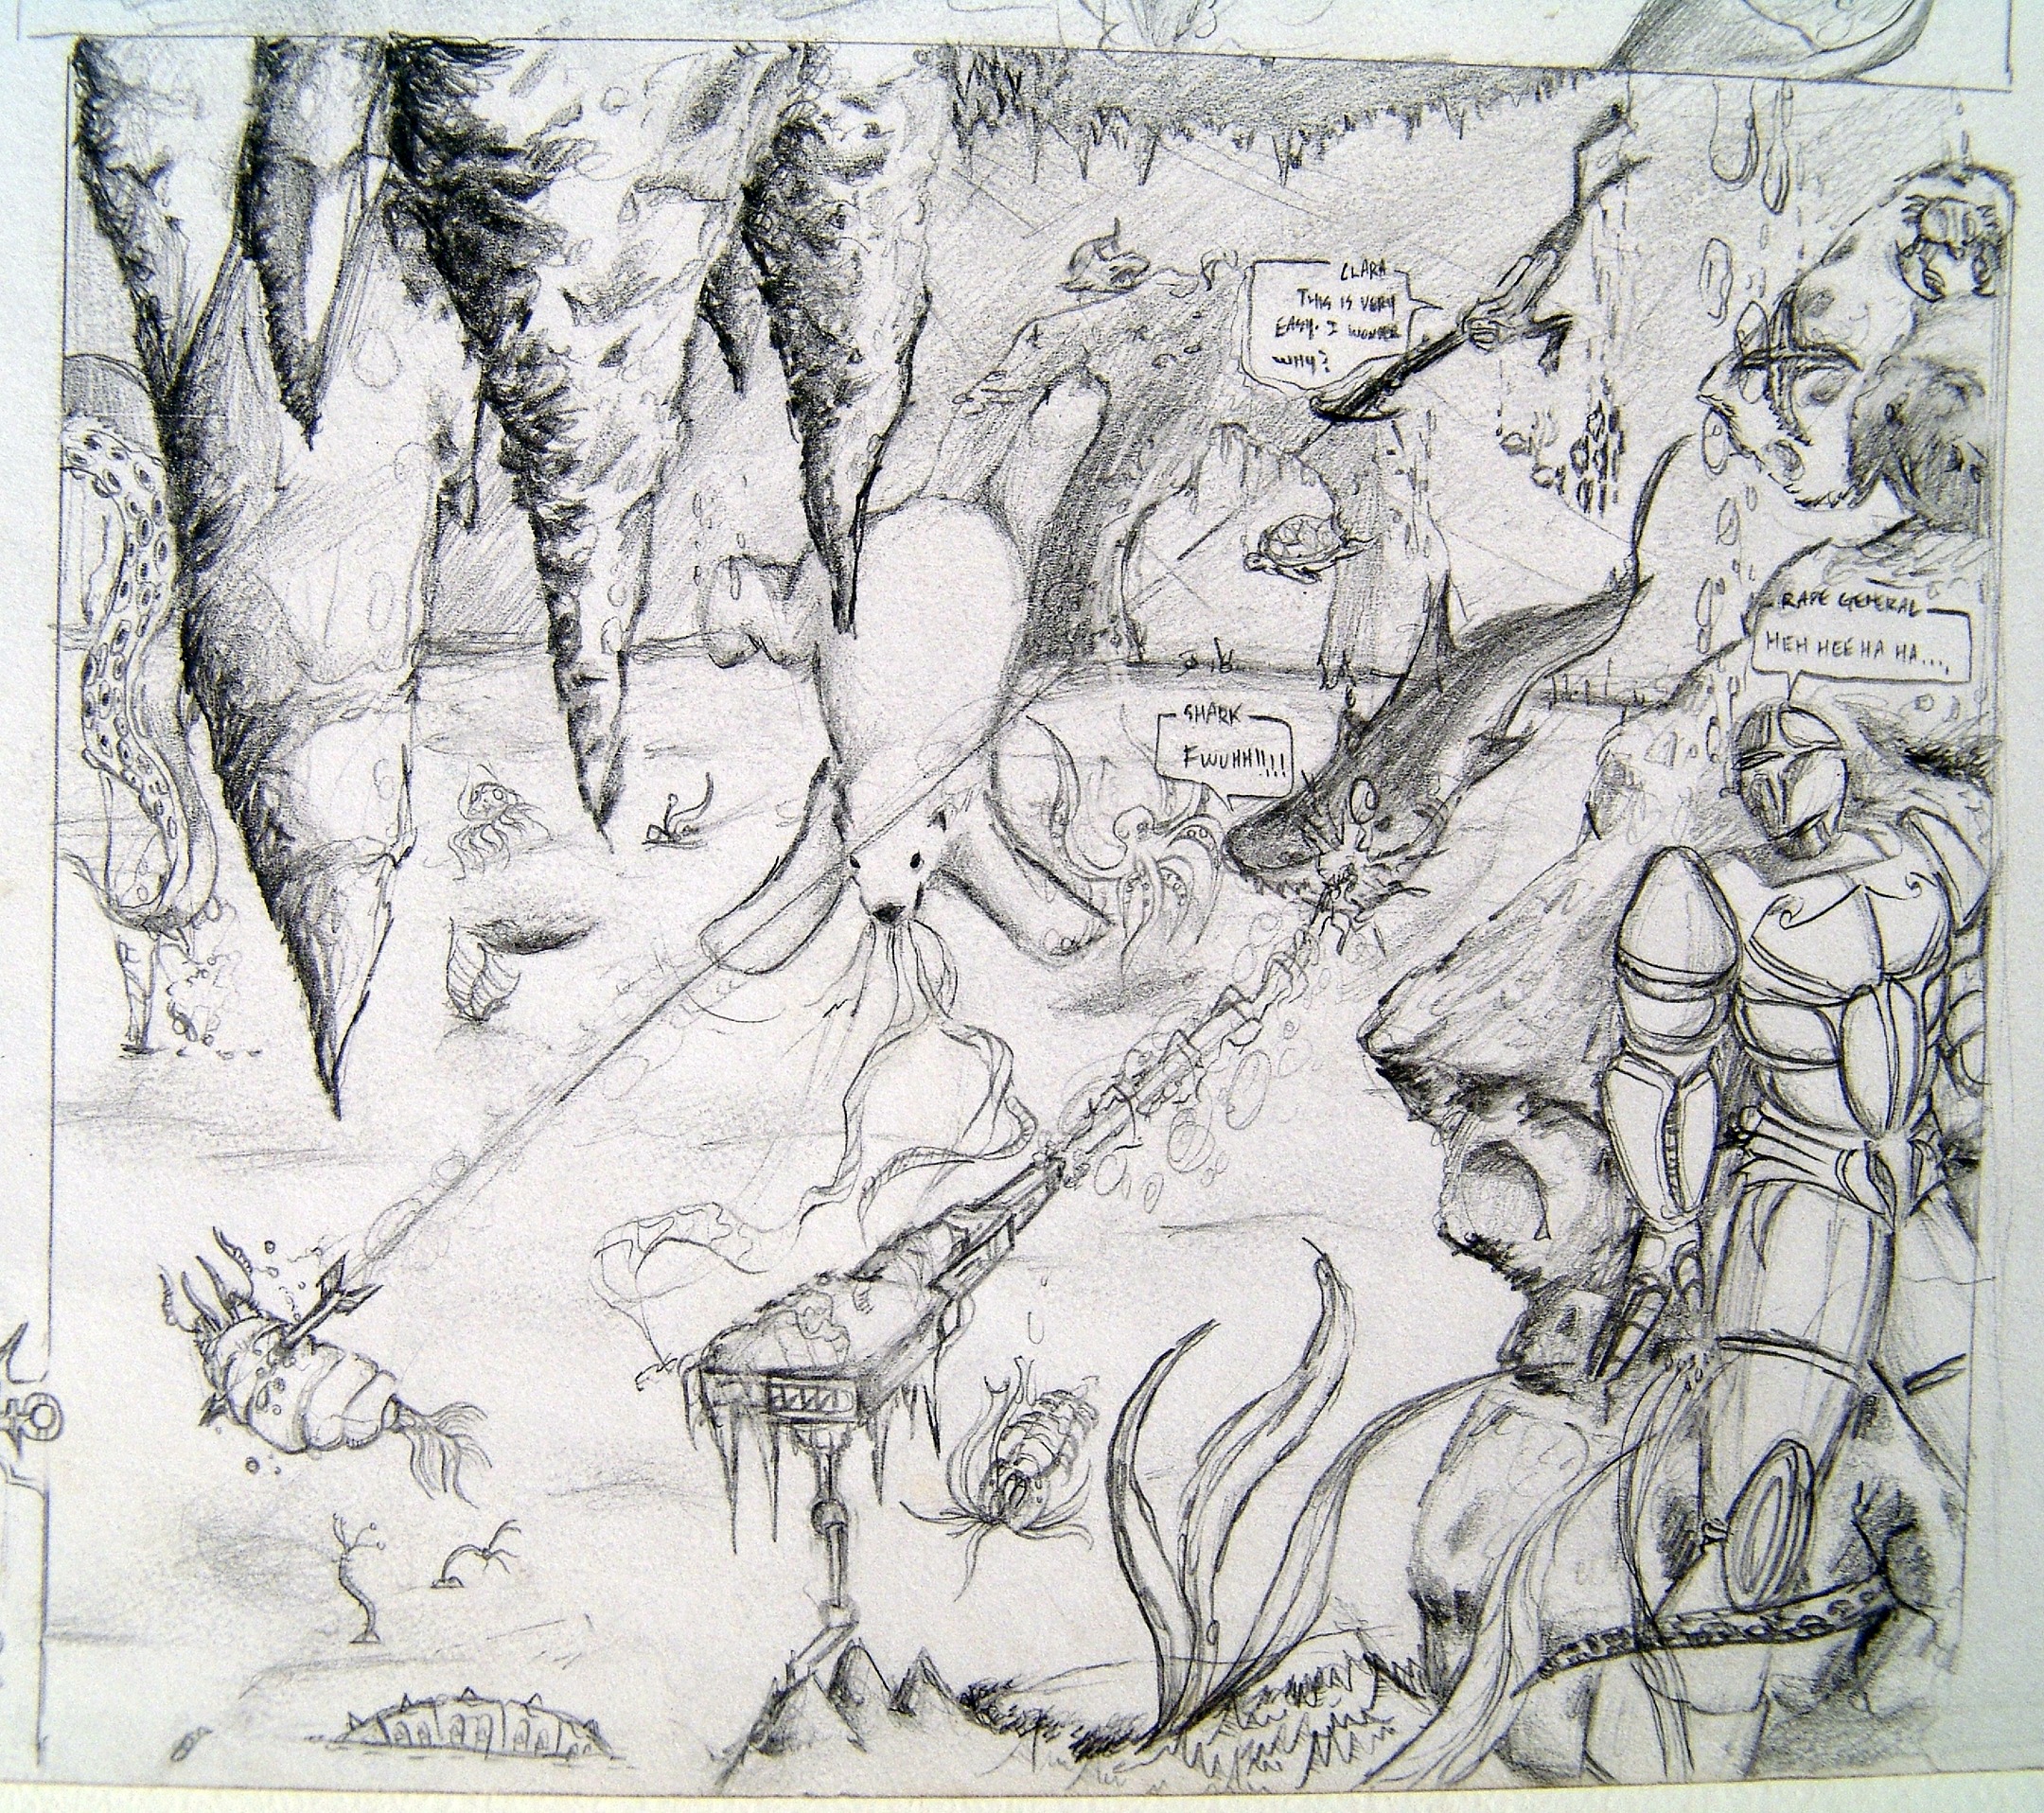 CLARA
THIS IS VERY
EASY. I WONDER
WHY?
RAPE GENERAL
HEH HEE HA HA....
SHARK
EWUHH!!!!